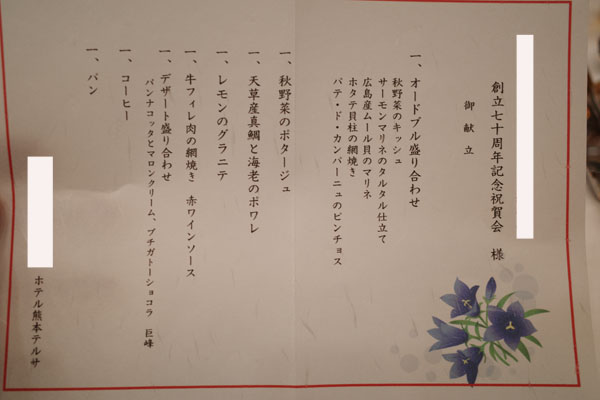 創立七十周年記念祝賀会 様
御献立
一、オードブル盛り合わせ
秋野菜のキッシュ
サーモンマリネのタルタル仕立て
広島産ムール貝のマリネ
ホタテ貝柱の網焼き
パテ・ド・カンパーニュのピンチョス
一、秋野菜のポタージュ
一、天草産真鯛と海老のポワレ
一、レモンのグラニテ
一、牛フィレ肉の網焼き 赤ワインソース
一、デザート盛り合わせ
パンナコッタとマロンクリーム、プチガトーショコラ 巨峰
一、コーヒー
一、パン
ホテル熊本テルサ